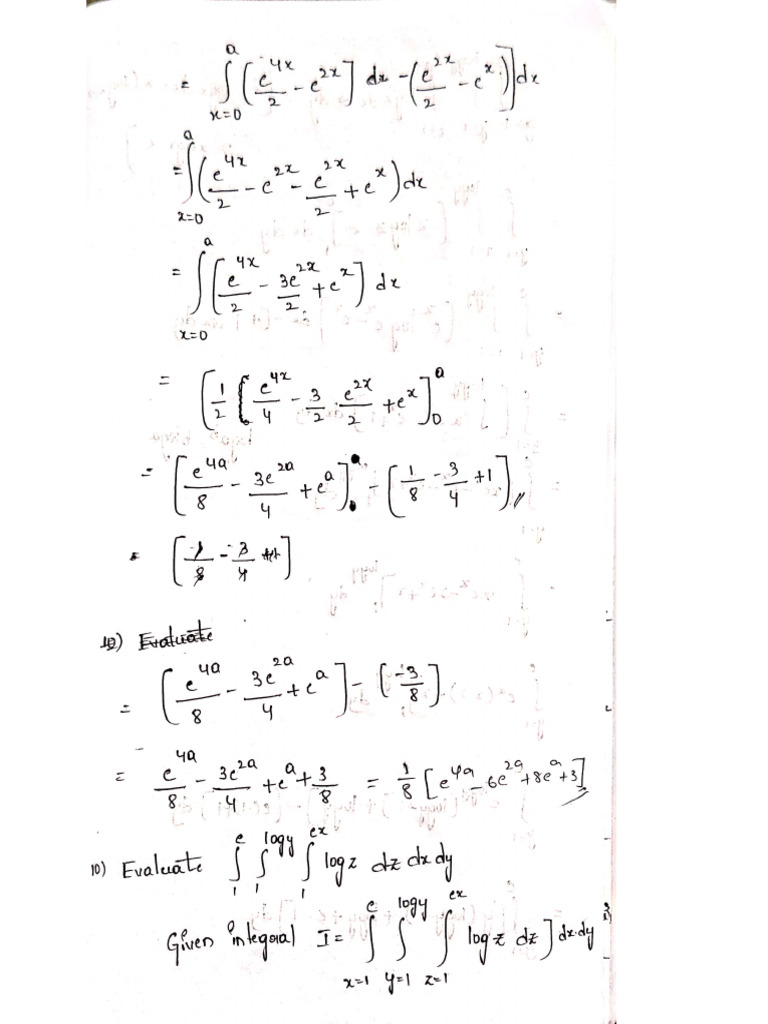 = ∫_{x=0}^{a} (e^{4x}/2 - e^{2x}] dx - (e^{2x}/2 - e^{x})] dx
= ∫_{x=0}^{a} (e^{4x}/2 - e^{2x} - e^{2x}/2 + e^{x}) dx
= ∫_{x=0}^{a} [e^{4x}/2 - 3e^{2x}/2 + e^{x}] dx
= [1/2 [e^{4x}/4 - 3/2 · e^{2x}/2 + e^{x}]_0^a
= [e^{4a}/8 - 3e^{2a}/4 + e^{a}] - [1/8 - 3/4 + 1]
= [1/8 - 3/4 + 1]
10) Evaluate
= [e^{4a}/8 - 3e^{2a}/4 + e^{a}] - [-3/8]
= e^{4a}/8 - 3e^{2a}/4 + e^{a} + 3/8 = 1/8 [e^{4a} - 6e^{2a} + 8e^{a} + 3]
10) Evaluate ∫_1^e ∫_1^{logy} ∫_1^{ex} log z dz dx dy
Given integral I = ∫_{x=1}^{e} ∫_{y=1}^{logy} ∫_{z=1}^{ex} log z dz] dx·dy